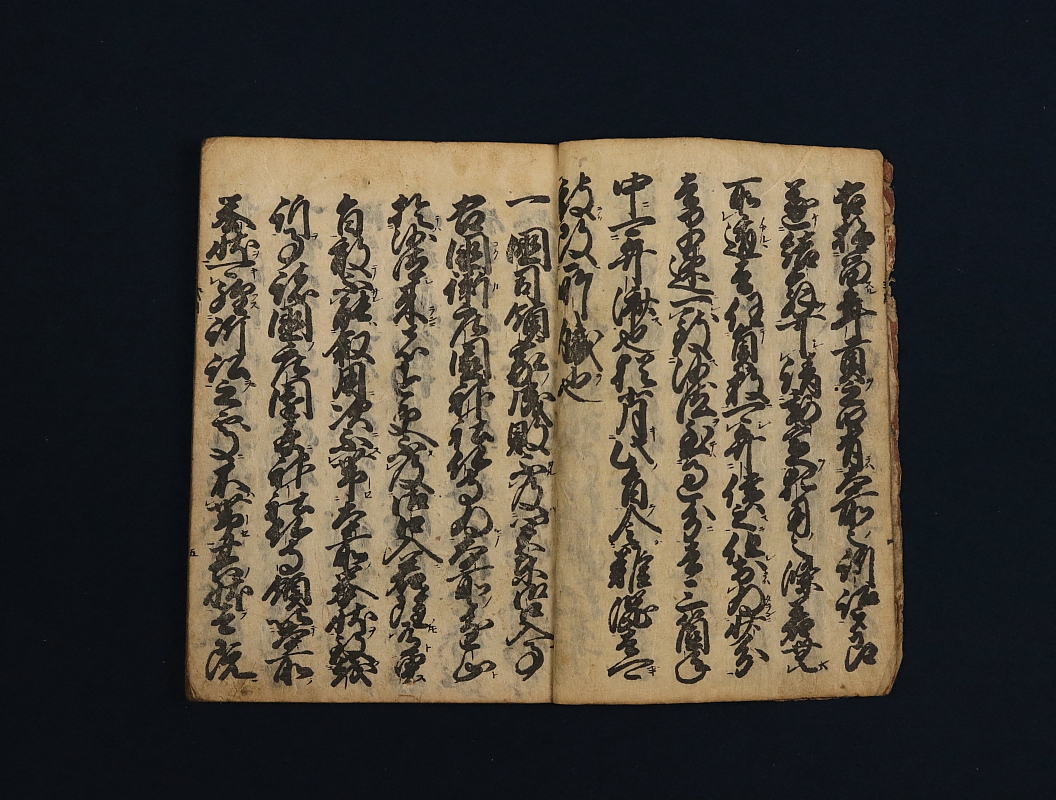 右抑留年貢之由有本所之訴訟者即
遂結解可請勘定犯用之條若無
所遁者任員数可弁償之但於為少分
者早速可致沙汰至過分者三箇年
中可弁済也猶背此旨令難渋者可
被改所職也
一國司領家成敗不及関東御口入事
右國衙庄園神社仏寺為本所進止
於沙汰出来者今更不及御口入若雖有申
旨敢不被叙用次不帯本所挙状致越
訴事諸國庄園并神社仏寺領以本所
挙状可経訴訟之處不帯其状者既